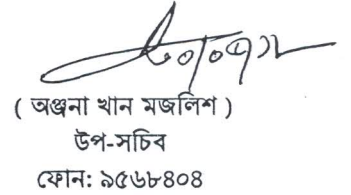 ( অঞ্জনা খান মজলিশ )
উপ-সচিব
ফোন: ৯৫৬৮৪০৪